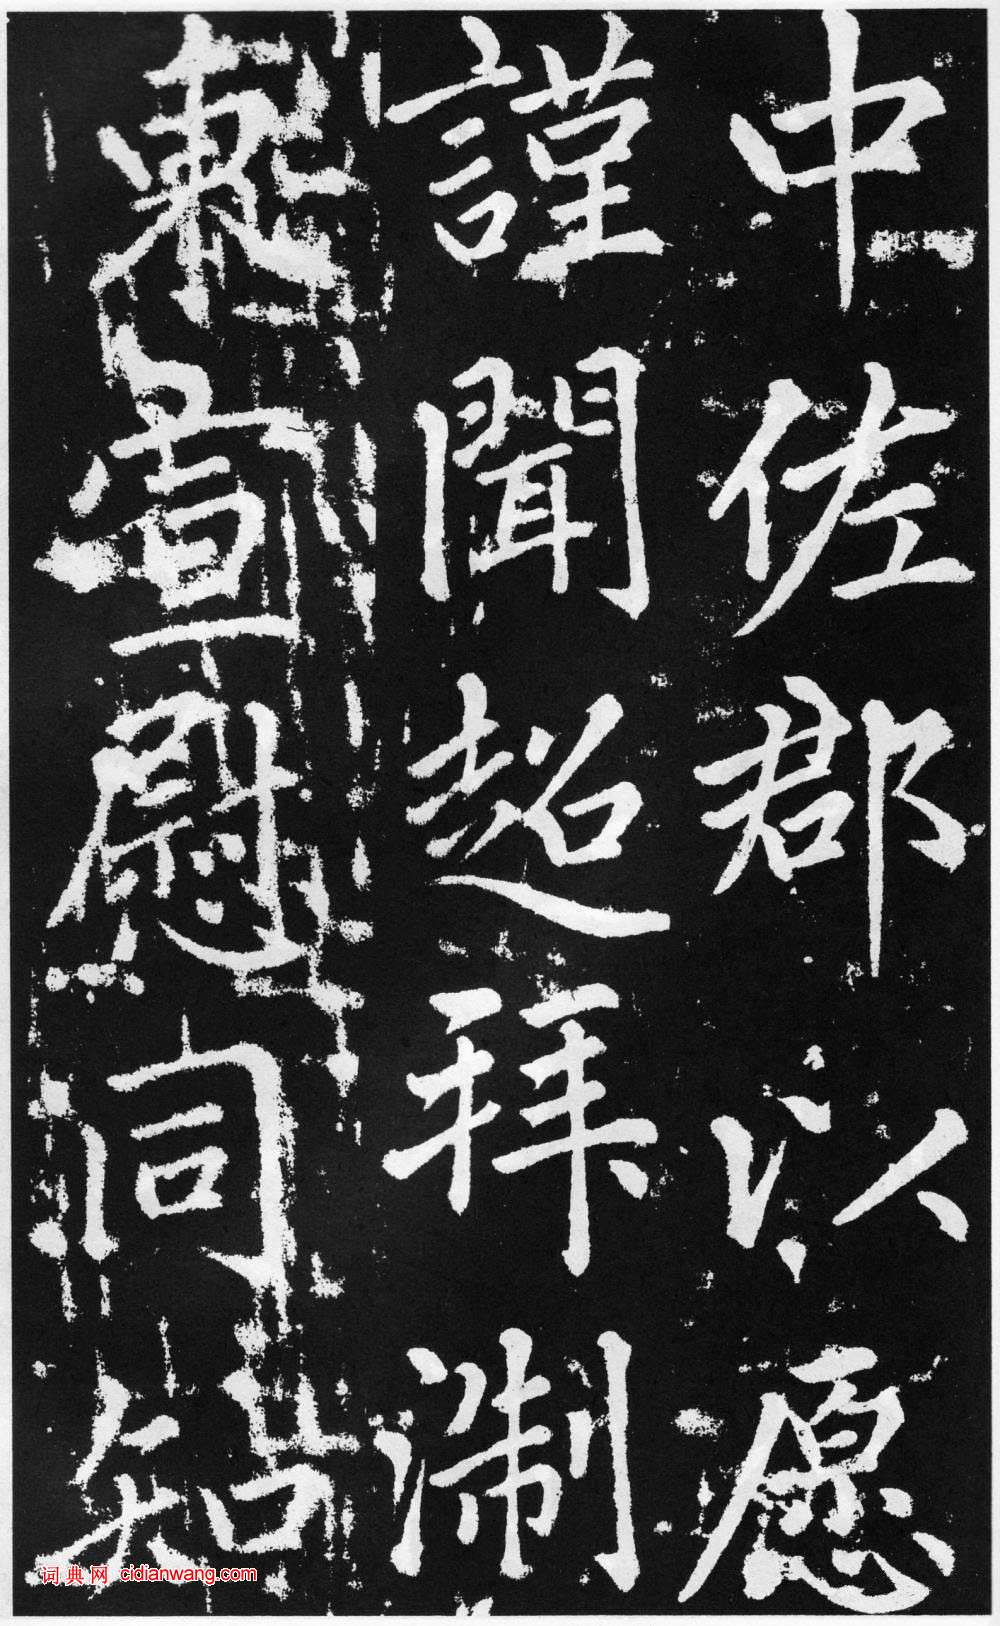 中佐郡以愿
謹聞超拜淛
東宣慰同知
词典网 cidianwang.com